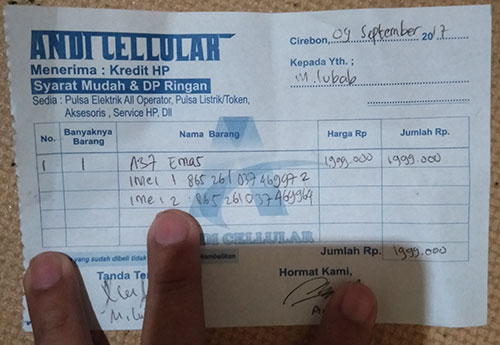 ANDI CELLULAR
Menerima : Kredit HP
Syarat Mudah & DP Ringan
Sedia : Pulsa Elektrik All Operator, Pulsa Listrik/Token,
Aksesoris , Service HP, Dll
Cirebon, 09 September 2017
Kepada Yth ;
M. lubab
No. Banyaknya Barang Nama Barang Harga Rp Jumlah Rp.
1 1 A37 Emas 1999.000 1999.000
IMEI 1 865261037469972
IMEI 2 : 865261037469964
ANDI CELLULAR
yang sudah dibeli tidak
Jumlah Rp. 1999.000
Tanda Te
Hormat Kami,